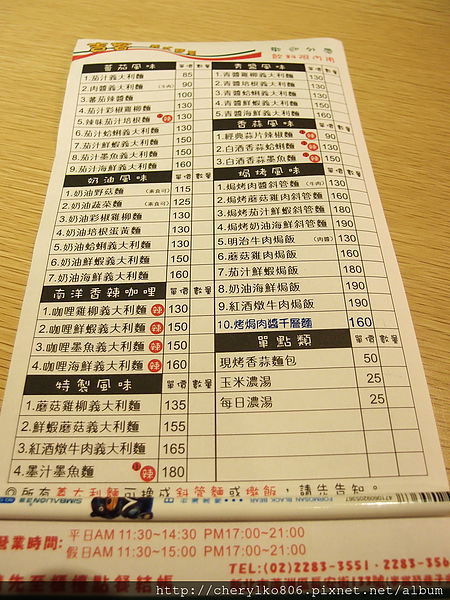 歡迎外帶
飲料限內用
蕃茄風味 單價 數量
1.茄汁義大利麵 85
2.肉醬義大利麵 (牛肉) 90
3.蕃茄辣醬麵 100
4.茄汁彩椒雞柳麵 130
5.辣味茄汁培根麵 辣 130
6.茄汁蛤蜊義大利麵 130
7.茄汁鮮蝦義大利麵 150
8.茄汁墨魚義大利麵 150
9.茄汁海鮮義大利麵 160
奶油風味 單價 數量
1.奶油野菇麵 (素食可) 115
2.奶油蔬菜麵 (素食可) 125
3.奶油彩椒雞柳麵 130
4.奶油培根蛋黃麵 130
5.奶油蛤蜊義大利麵 130
6.奶油鮮蝦義大利麵 150
7.奶油海鮮義大利麵 160
南洋香辣咖哩 單價 數量
1.咖哩雞柳義大利麵 辣 130
2.咖哩鮮蝦義大利麵 辣 150
3.咖哩墨魚義大利麵 辣 150
4.咖哩海鮮義大利麵 辣 160
特製風味 單價 數量
1.蘑菇雞柳義大利麵 135
2.鮮蝦蘑菇義大利麵 155
3.紅酒燉牛肉義大利麵 165
4.墨汁墨魚麵 辣 180
青醬風味 單價 數量
1.青醬雞柳義大利麵 130
2.青醬培根義大利麵 130
3.青醬蛤蜊義大利麵 130
4.青醬鮮蝦義大利麵 150
5.青醬海鮮義大利麵 160
香蒜風味 單價 數量
1.經典蒜片辣椒麵 辣 90
2.白酒香蒜蛤蜊麵 辣 130
3.白酒香蒜墨魚麵 辣 150
焗烤風味 單價 數量
1.焗烤肉醬斜管麵 (牛肉) 130
2.焗烤蘑菇雞肉斜管麵 160
3.焗烤茄汁鮮蝦斜管麵 180
4.焗烤奶油海鮮斜管麵 190
5.明治牛肉焗飯 (肉醬) 130
6.蘑菇雞肉焗飯 160
7.茄汁鮮蝦焗飯 180
8.奶油海鮮焗飯 190
9.紅酒燉牛肉焗飯 190
10.烤焗肉醬千層麵 160
單點類 單價 數量
現烤香蒜麵包 50
玉米濃湯 25
每日濃湯 25
◎所有義大利麵可換成斜管麵或燉飯,請先告知。
營業時間: 平日AM 11:30~14:30 PM17:00~21:00
假日AM 11:30~15:00 PM17:00~21:00
TEL:(02)2283-3551
請先至櫃檯點餐結帳
http://cherylko806.pixnet.net/album